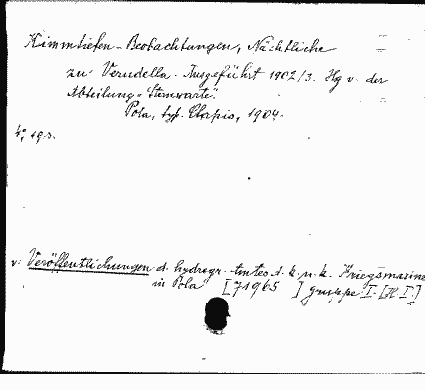 Kimmtiefen-Beobachtungen, Nächtliche
zu Verudella. Ausgeführt 1902/3. Hg v. der
Abteilung "Sternwarte".
Pola, typ. Clapis, 1904.
4°, 19 S.
v: Veröffentlichungen d. hydrogr. Amtes d. k. u. k. Kriegsmarine
in Pola [71965 ] Gruppe I. [H I.]